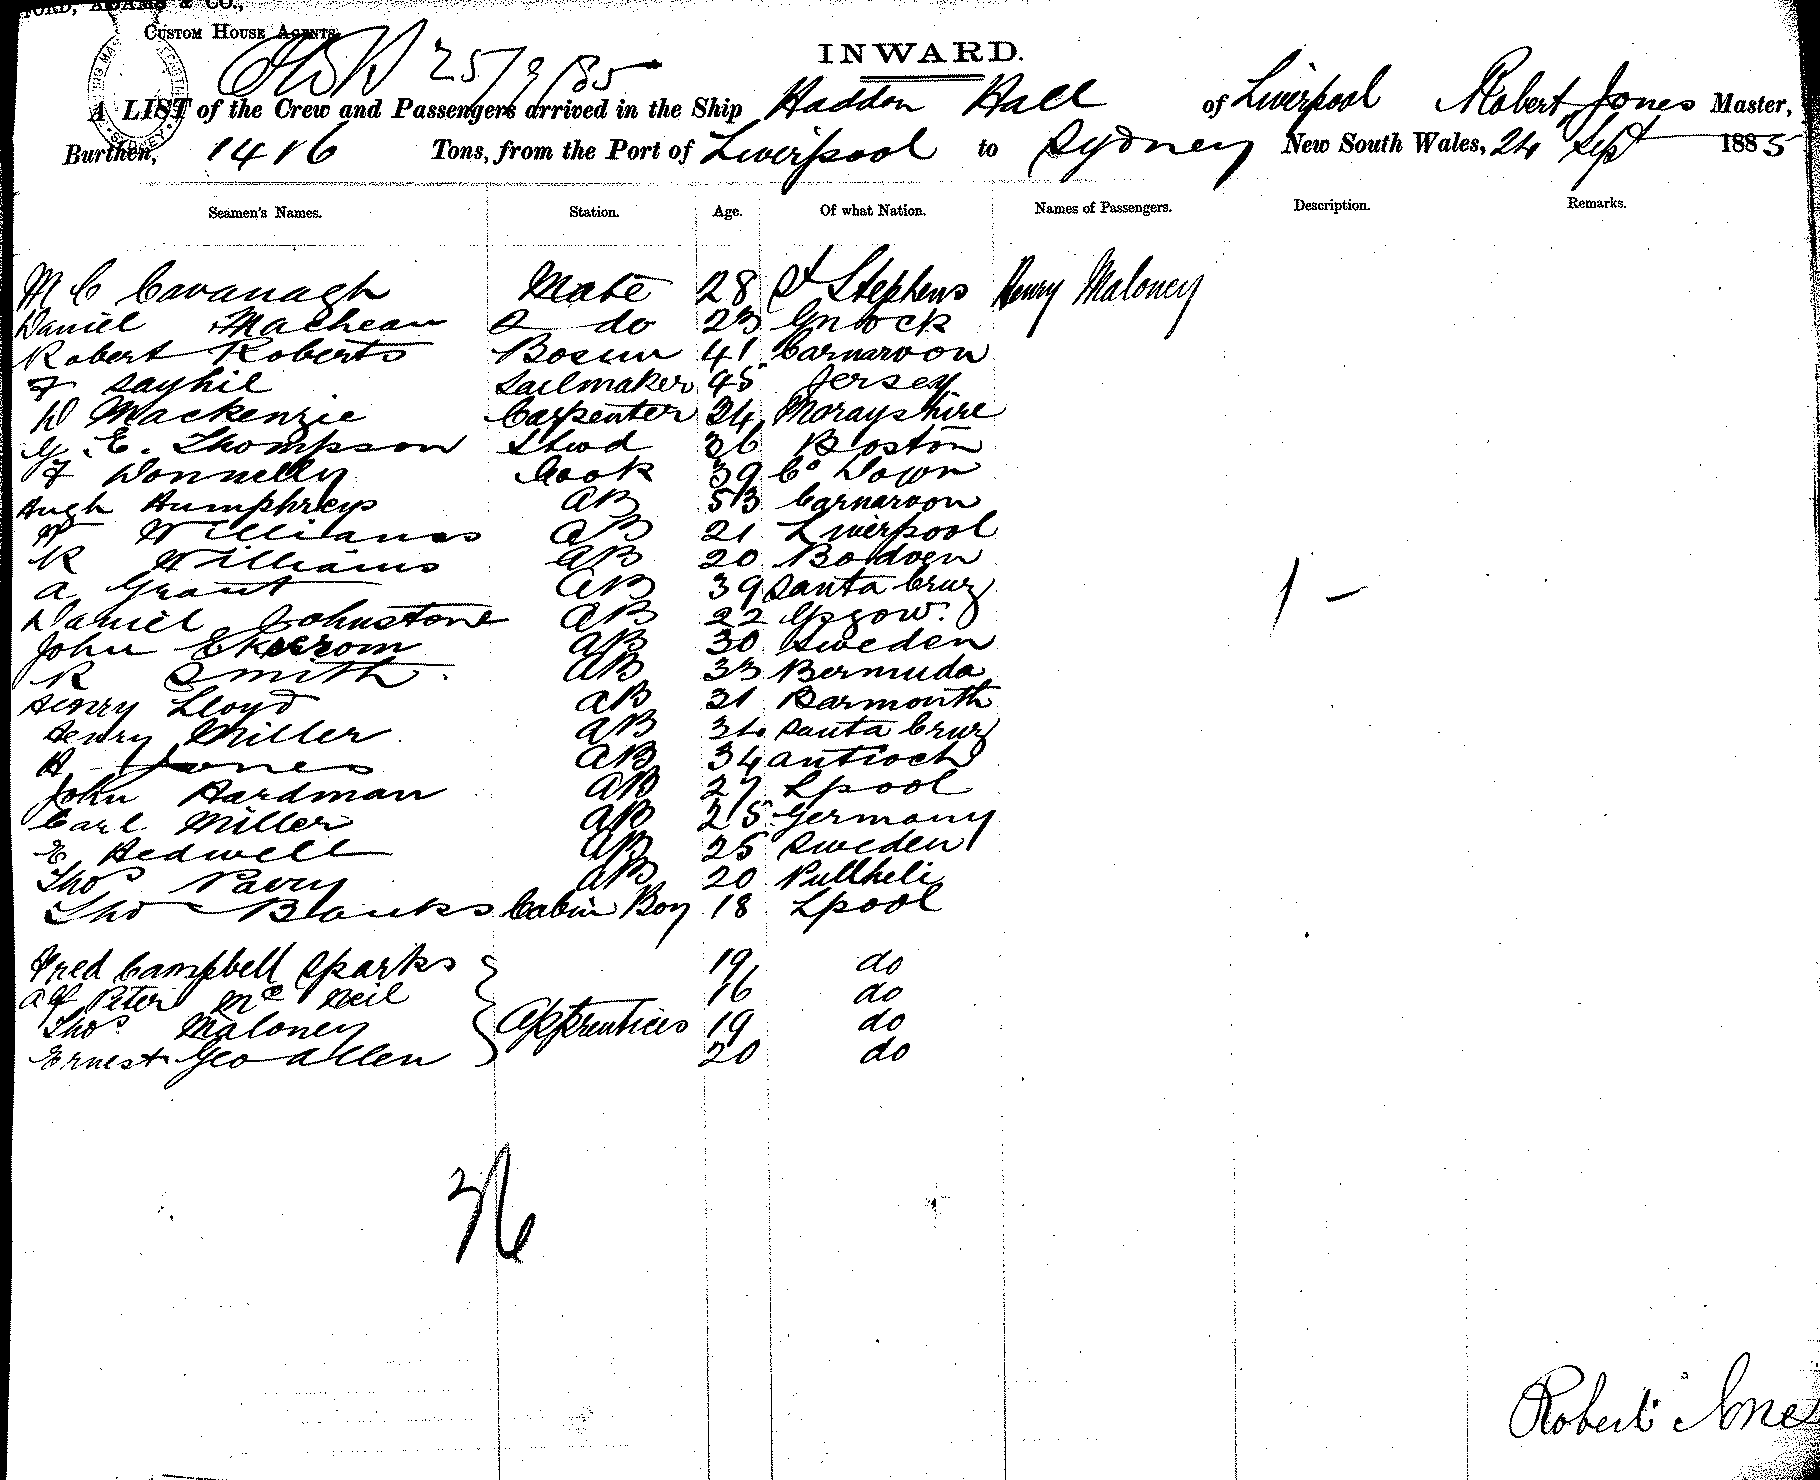 FORD, ADAMS & CO.,
CUSTOM HOUSE AGENTS,
25/9/85
INWARD.
A LIST of the Crew and Passengers arrived in the Ship Haddon Hall of Liverpool Robert Jones Master,
Burthen, 1416 Tons, from the Port of Liverpool to Sydney New South Wales, 24 Sept 1885
Seamen's Names. Station. Age. Of what Nation. Names of Passengers. Description. Remarks.
M C Cavanagh Mate 28 St Stephens Henry Maloney
Daniel Machean 2 do 23
Robert Roberts Bosun 41 Carnarvon
F Sayhil Sailmaker 45 Jersey
D Mackenzie Carpenter 24 Morayshire
G. E. Thompson Stwd 36 Boston
F Donnelly Cook 39 Co Down
Hugh Humphreys AB 53 Carnarvon
W Williams AB 21 Liverpool
R Williams AB 20
A Grant AB 39 Santa Cruz
Daniel Johnstone AB 22 Gsgow.
John Ekerrom AB 30 Sweden
R Smith AB 33 Bermuda
Henry Lloyd AB 31 Barmouth
Henry Miller AB 34 Santa Cruz
H Jones AB 34 Antioch
John Hardman AB 27 Lpool
Carl Miller AB 25 Germany
E Hedwell AB 25 Sweden
Thos Parry AB 20 Pullheli
Tho Banks Cabin Boy 18 Lpool
Fred Campbell Sparks 19 do
Peter Mc Neil 16 do
Thos Maloney Apprentices 19 do
Ernest Geo Allen 20 do
1 -
Robert Jones